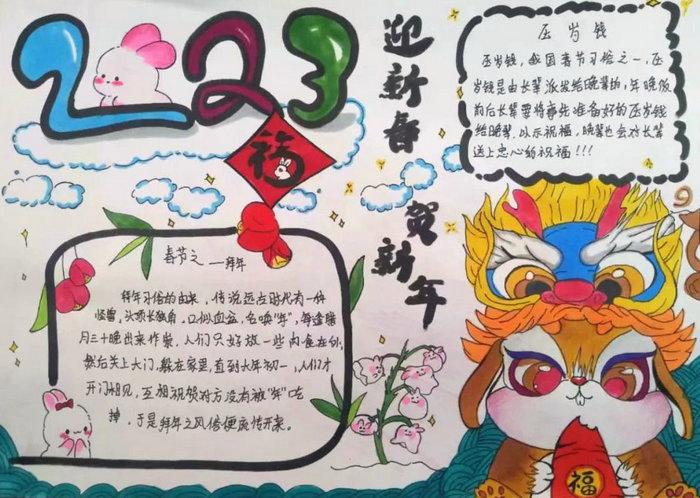 223
福
迎新春
贺新年
压岁钱
压岁钱,我国春节习俗之一,压
岁钱是由长辈派发给晚辈的,年晚饭
前后长辈要将事先准备好的压岁钱
给晚辈,以示祝福,晚辈也会对长辈
送上忠心的祝福!!!
春节之——拜年
拜年习俗的由来,传说远古时代有一种
怪兽,头顶长独角,口似血盆,名唤"年",每逢腊
月三十晚出来作祟,人们只好放一些肉食在外,
然后关上大门,躲在家里,直到大年初一,人们才
开门相见,互相祝贺对方没有被"年"吃
掉,于是拜年之风俗便流传开来。
福